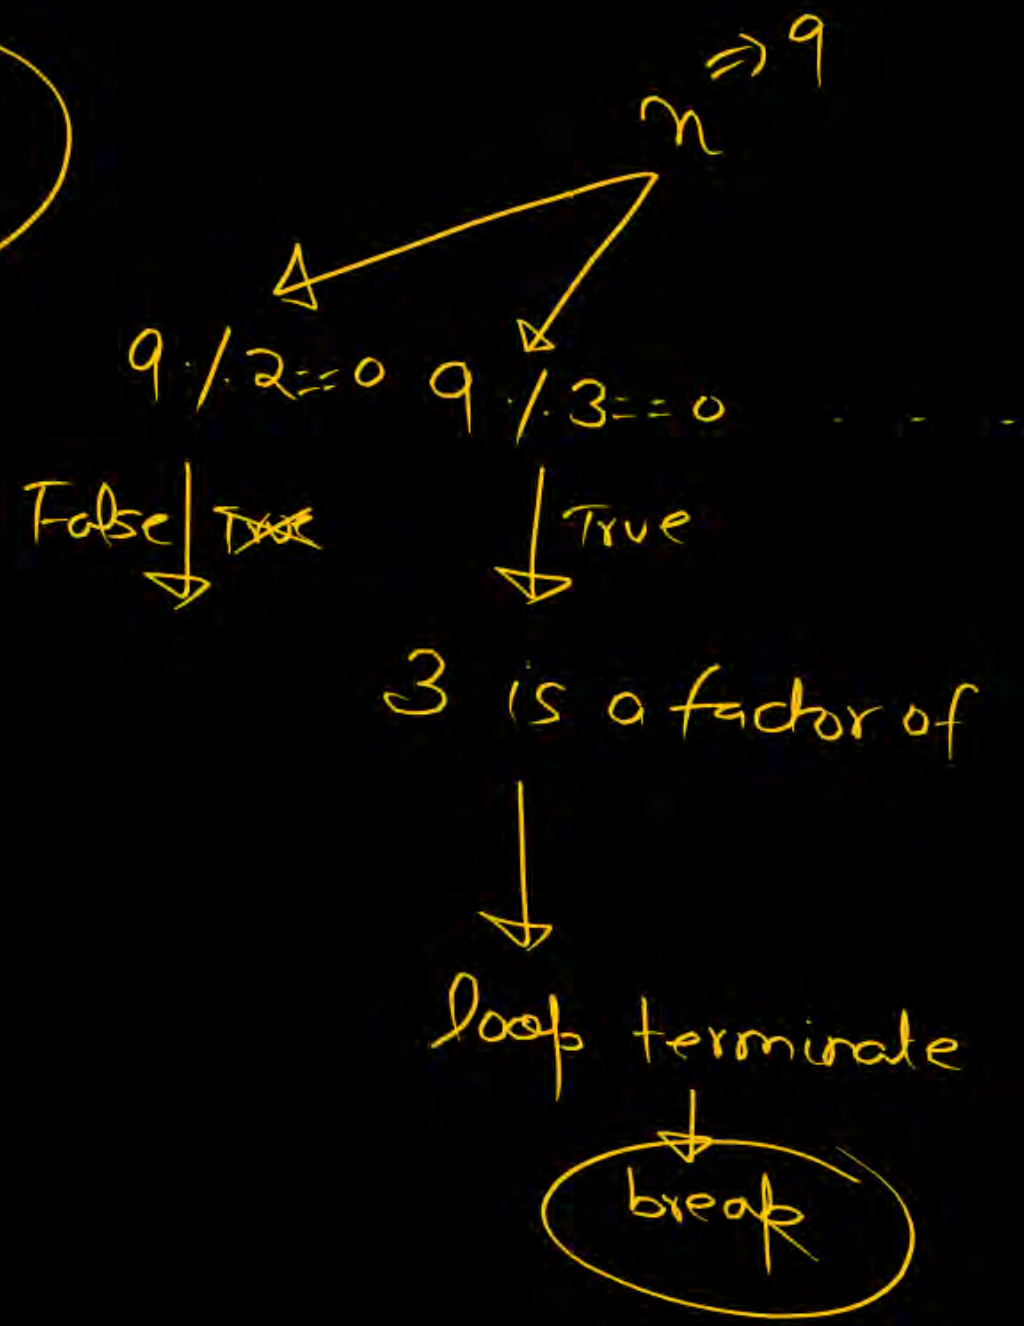 n => 9
9 % 2 == 0 9 % 3 == 0 - - -
False True True
3 is a factor of
loop terminate
break